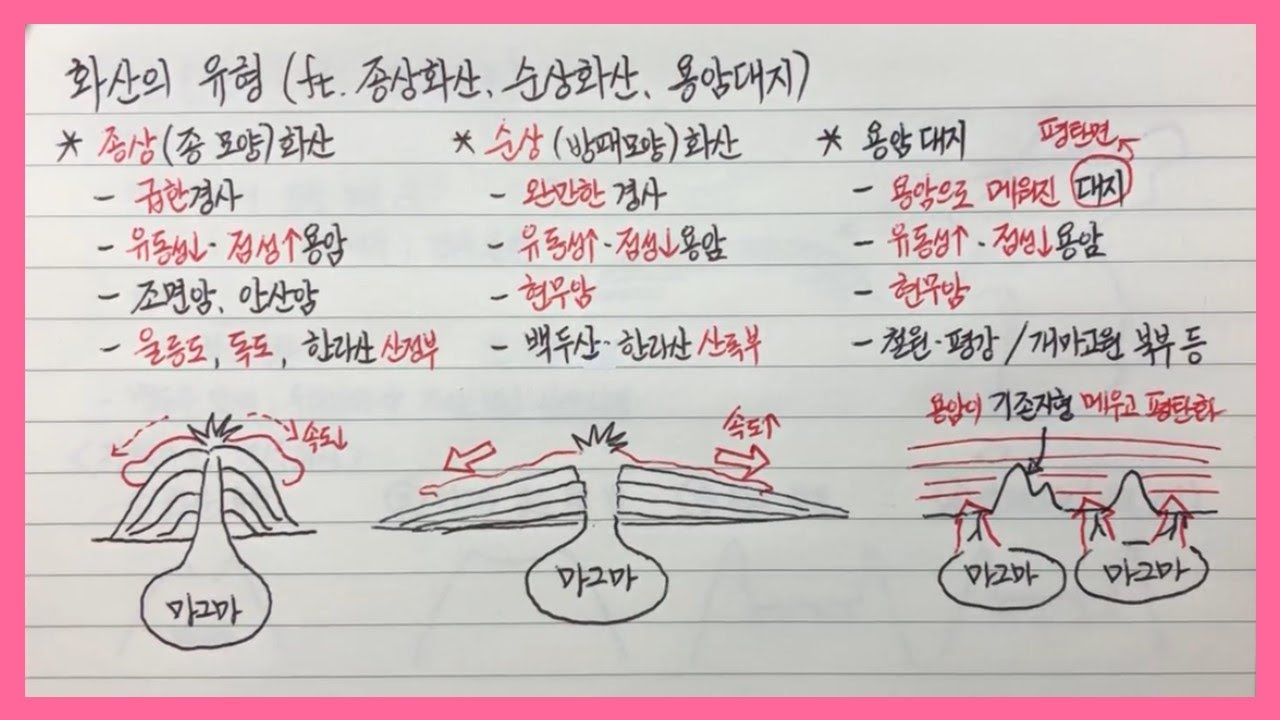 화산의 유형 (ft. 종상화산, 순상화산, 용암대지)
* 종상(종 모양)화산
- 급한경사
- 유동성↓·점성↑용암
- 조면암, 안산암
- 울릉도, 독도, 한라산 산정부
속도↓
마그마
* 순상(방패모양)화산
- 완만한 경사
- 유동성↑·점성↓용암
- 현무암
- 백두산·한라산 산록부
속도↑
마그마
* 용암대지
평탄면
- 용암으로 메워진 대지
- 유동성↑·점성↓용암
- 현무암
- 철원·평강 / 개마고원 북부 등
용암이 기존지형 메우고 평탄화
마그마 마그마